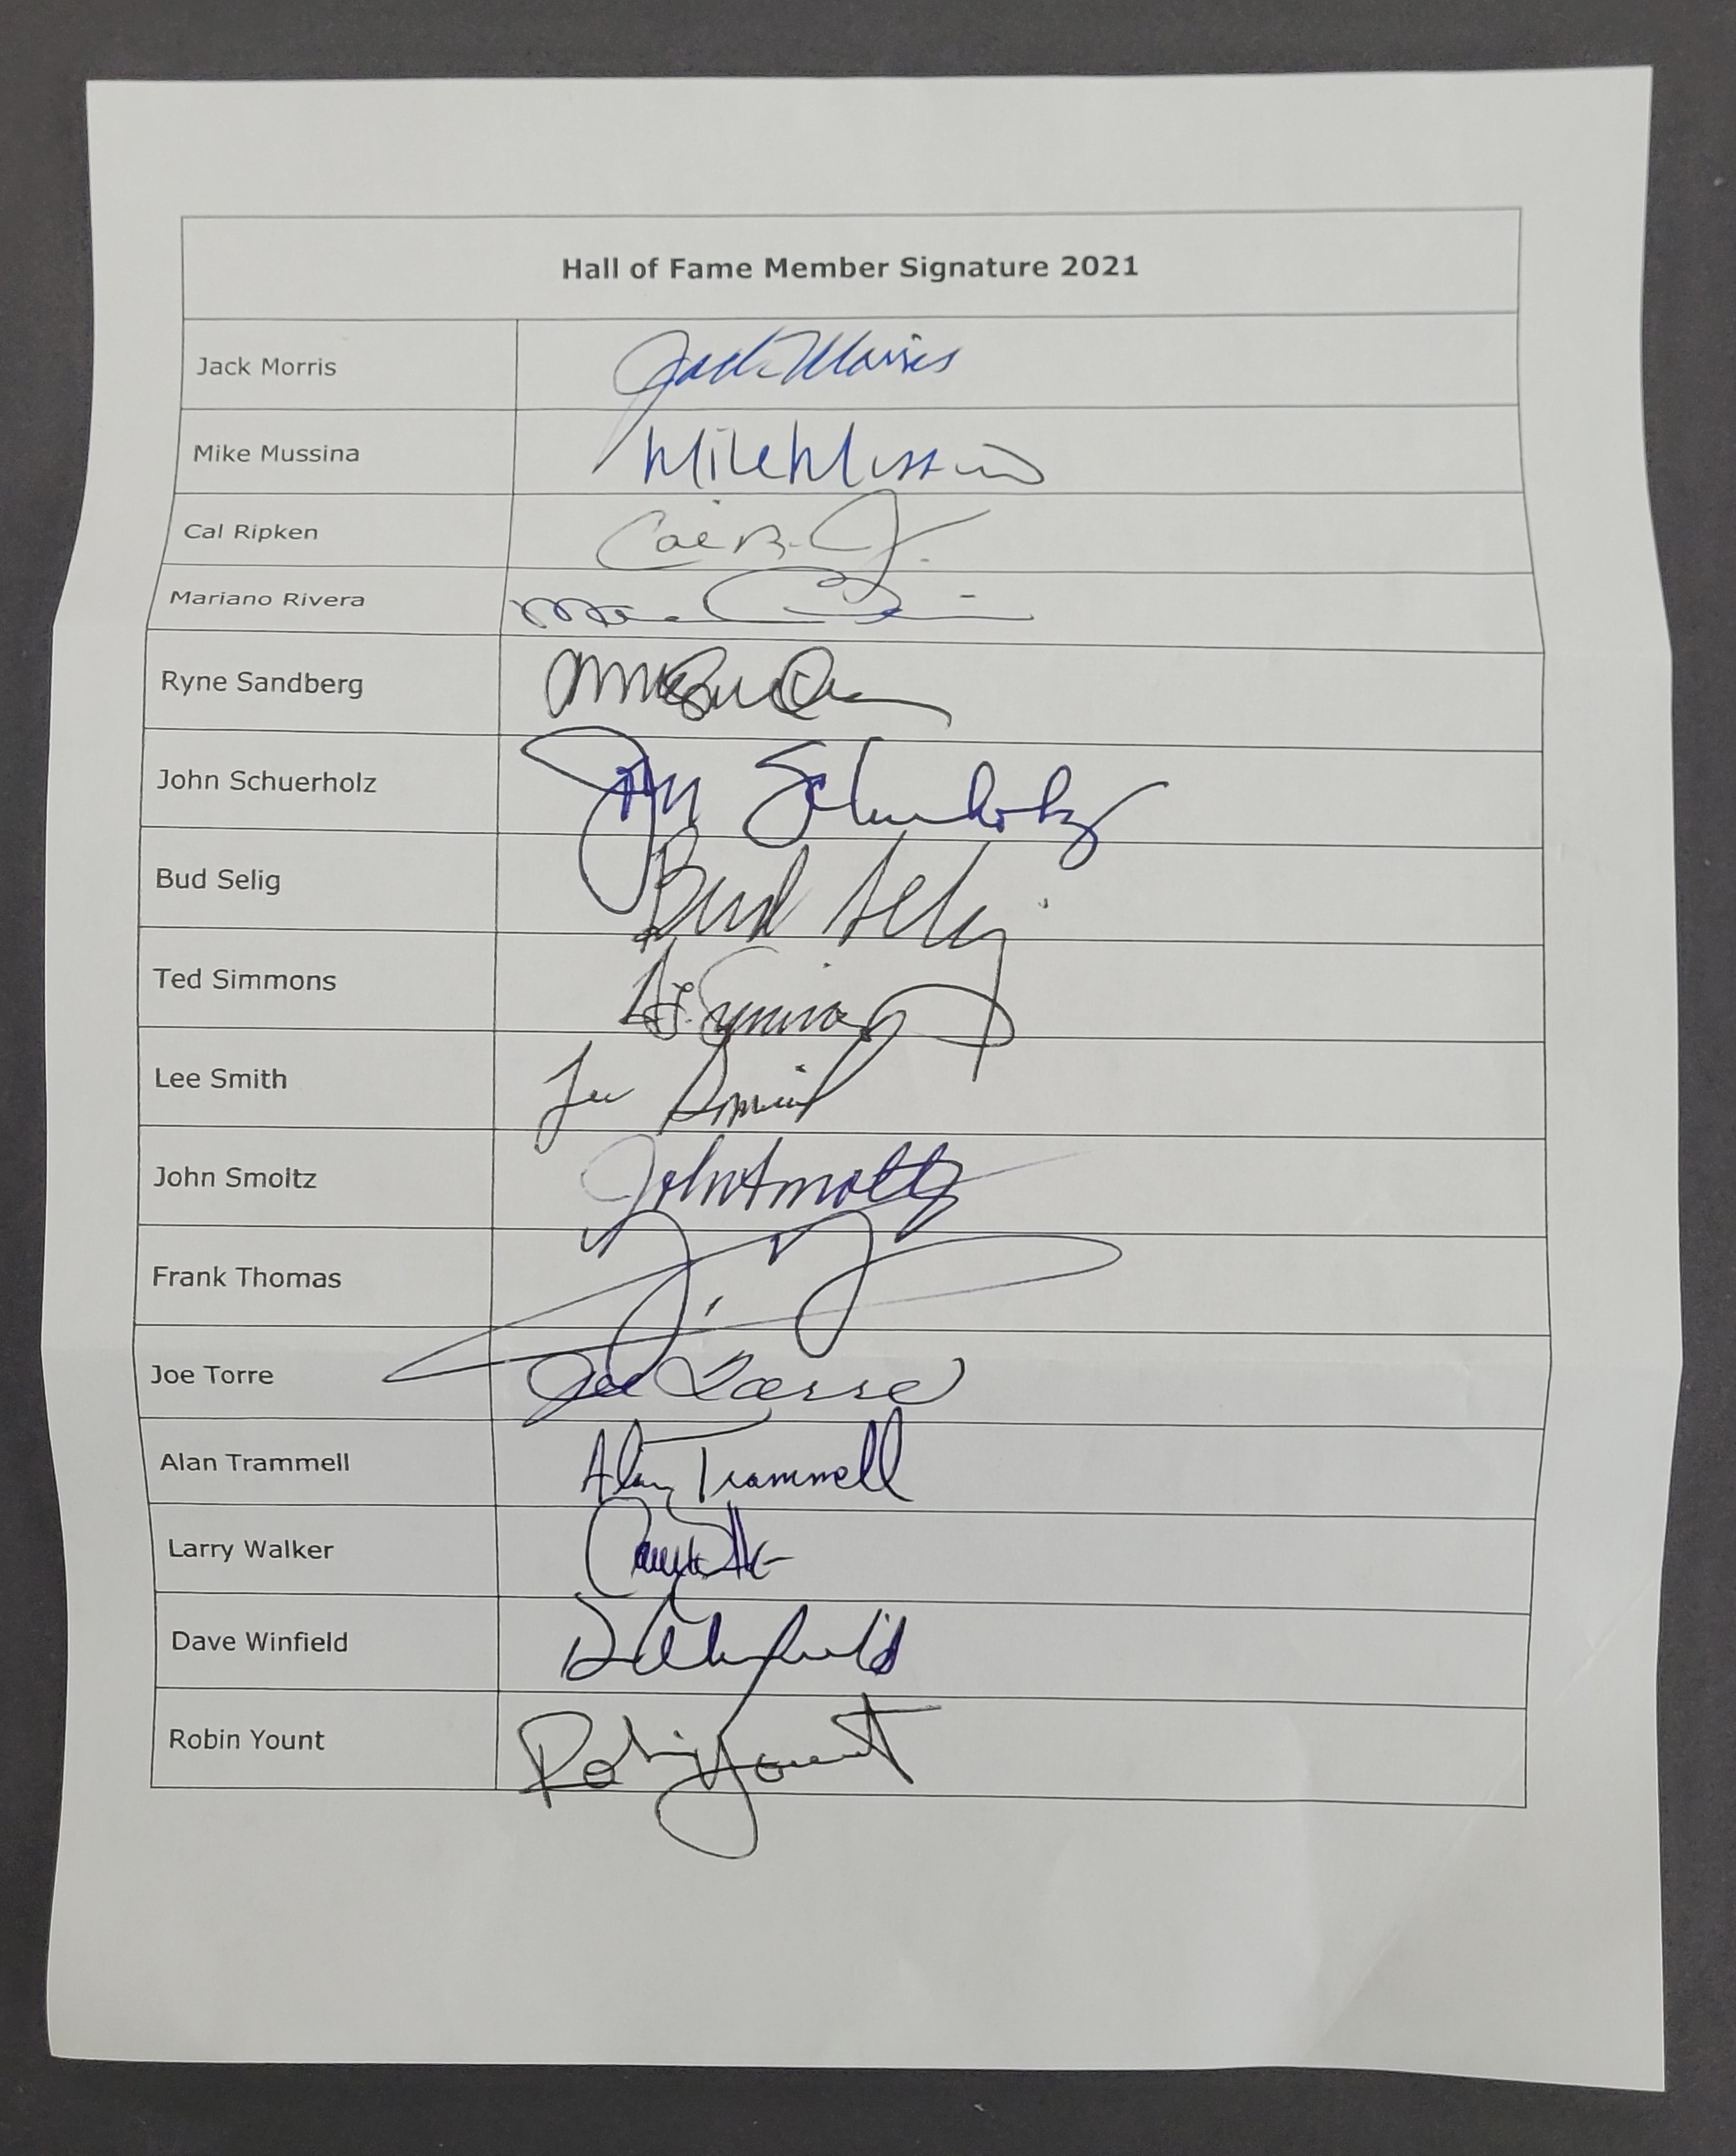 Hall of Fame Member Signature 2021
Jack Morris Jack Morris
Mike Mussina Mike Mussina
Cal Ripken Cal R. Jr.
Mariano Rivera
Ryne Sandberg
John Schuerholz John Schuerholz
Bud Selig Bud Selig
Ted Simmons Simmons
Lee Smith Lee Smith
John Smoltz John Smoltz
Frank Thomas
Joe Torre Joe Torre
Alan Trammell Alan Trammell
Larry Walker
Dave Winfield D Winfield
Robin Yount Robin Yount